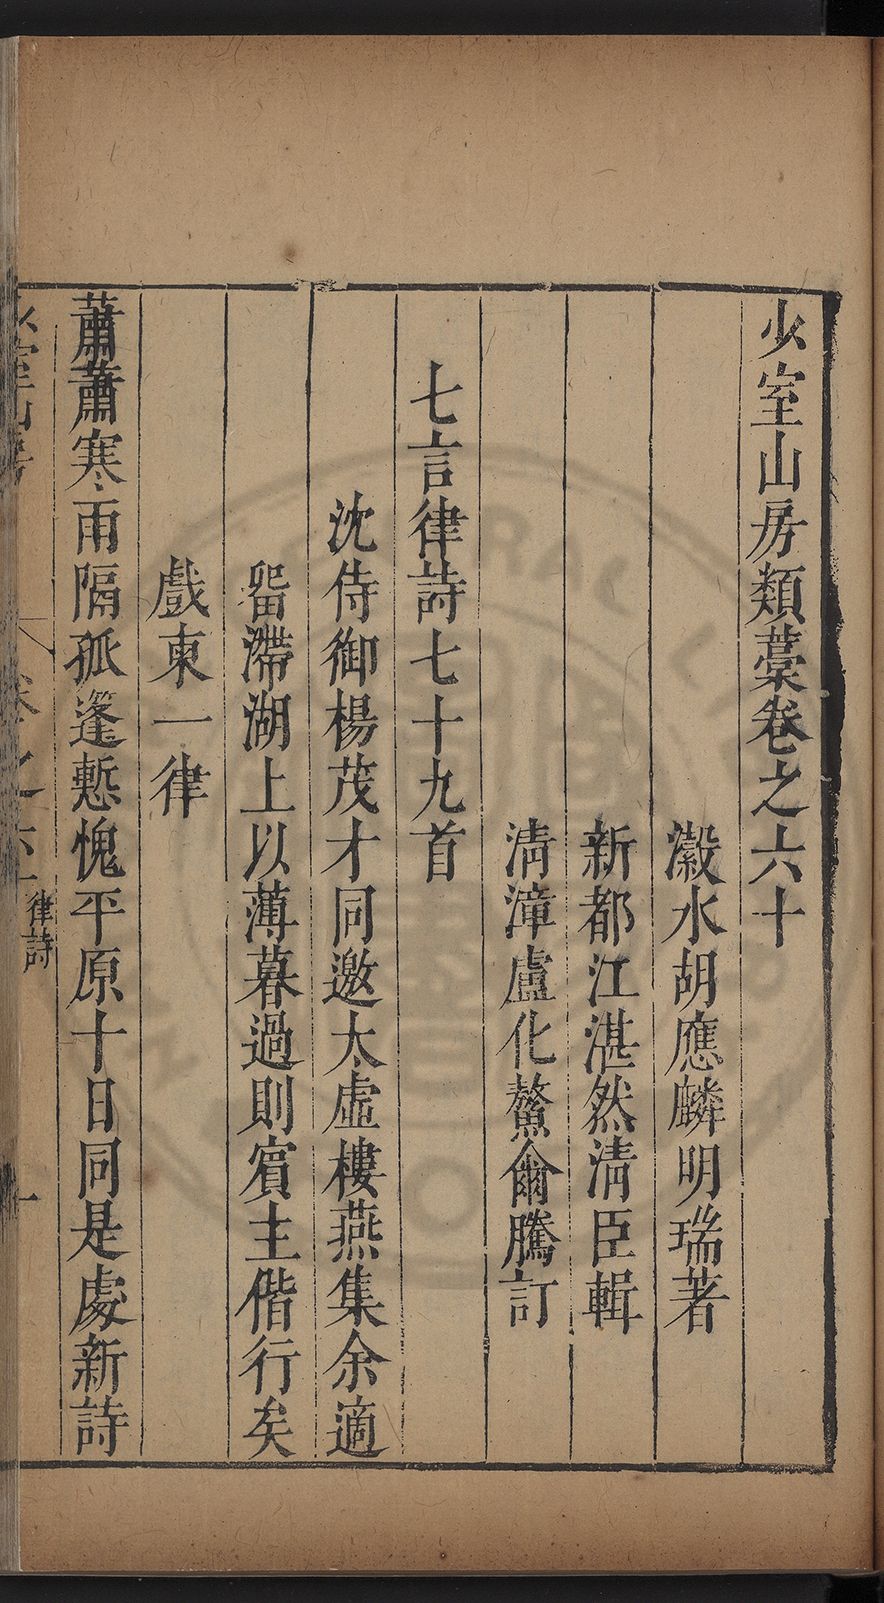 少室山房類藳卷之六十
瀫水胡應麟明瑞著
新都江湛然清臣輯
清漳盧化鰲爾騰訂
七言律詩七十九首
沈侍御楊茂才同邀太虛樓燕集余適
畱滯湖上以薄暮過則賓主偕行矣
戲柬一律
蕭蕭寒雨隔孤篷慙愧平原十日同是處新詩
少室山房
卷之六十
律詩
一